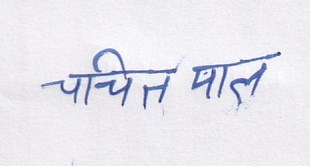 चाचित पाल